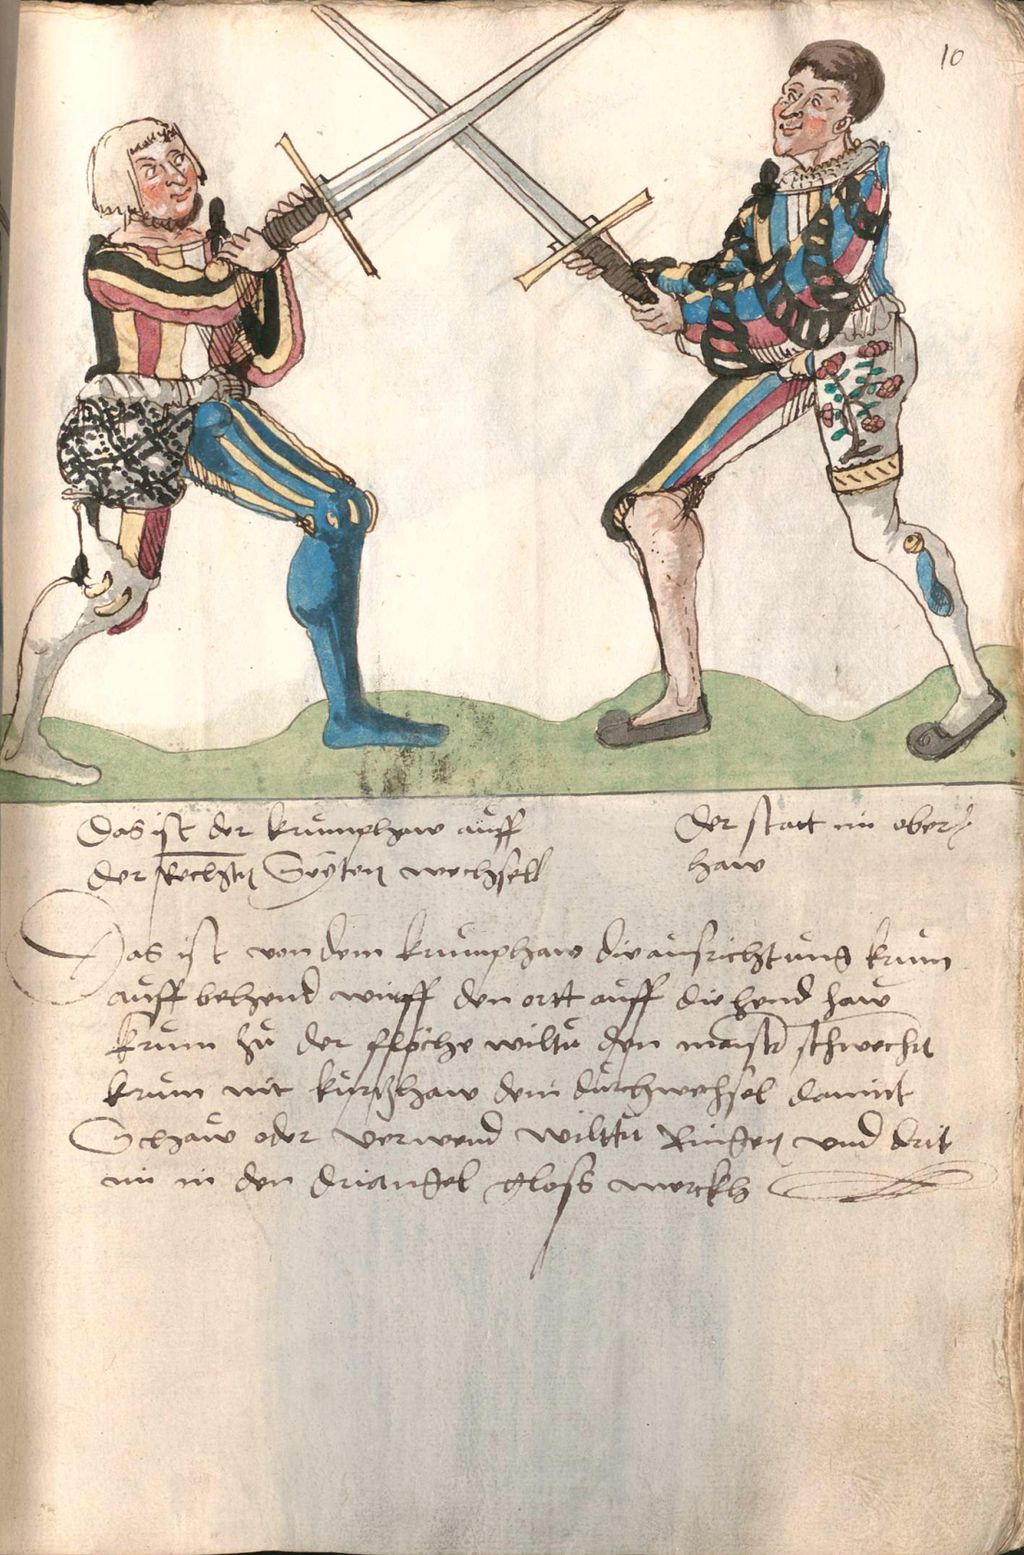 10
Das ist der krumphaw auff
der Rechtn Seytten wechsell
Der statt im ober
haw
Das ist von dem krumphaw die ausrichtung krum
auff behend wirff den ortt auff die hend haw
krum zu der flöche wiltu den maistr schwechn
krum nit kurtzhaw dem durchwechsel damit
Schaw oder verwend wilttu Ringen vnd drit
im in den driangel gloss merckh